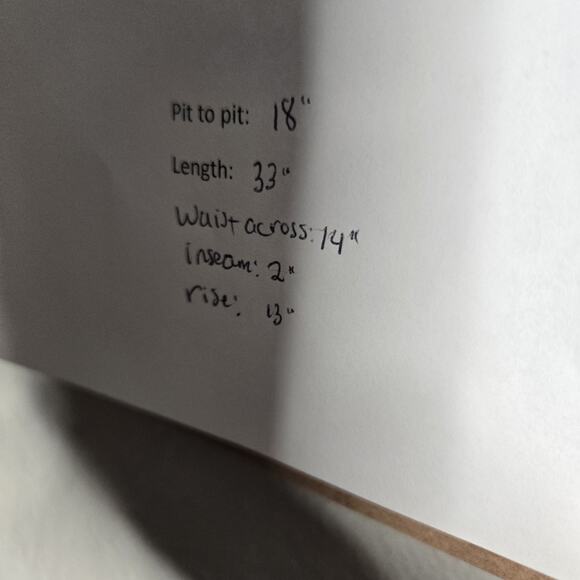 Pit to pit: 18"
Length: 33"
Waist across: 14"
inseam: 2"
rise: 13"